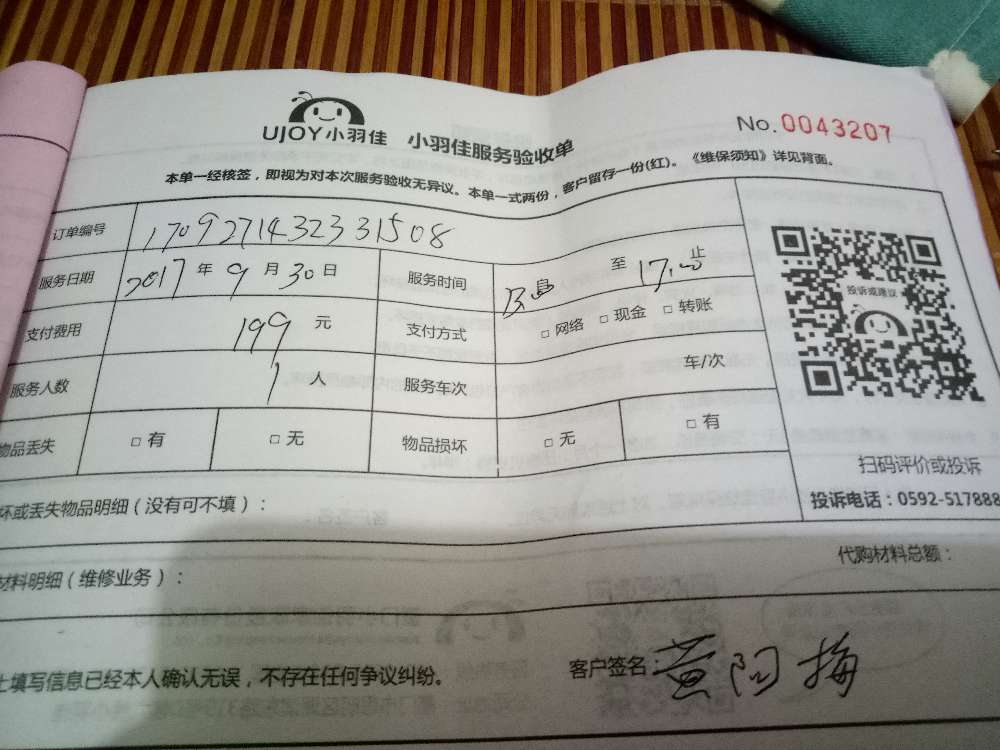 UJOY小羽佳 小羽佳服务验收单 No.0043207
本单一经核签，即视为对本次服务验收无异议。本单一式两份，客户留存一份(红)。《维保须知》详见背面。
订单编号 170927143233 1508
服务日期 2017年9月30日 服务时间 至 17:00 止
支付费用 199 元 支付方式 □ 网络 □ 现金 □ 转账
服务人数 1 人 服务车次 车/次
物品丢失 □ 有 □ 无 物品损坏 □ 无 □ 有
投诉或建议
扫码评价或投诉
投诉电话：0592-517888
坏或丢失物品明细（没有可不填）：
材料明细（维修业务）： 代购材料总额：
上填写信息已经本人确认无误，不存在任何争议纠纷。 客户签名：黄阿梅